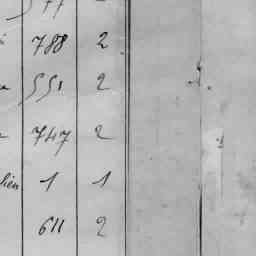 788 2
551 2
747 2
lien 1 1
611 2